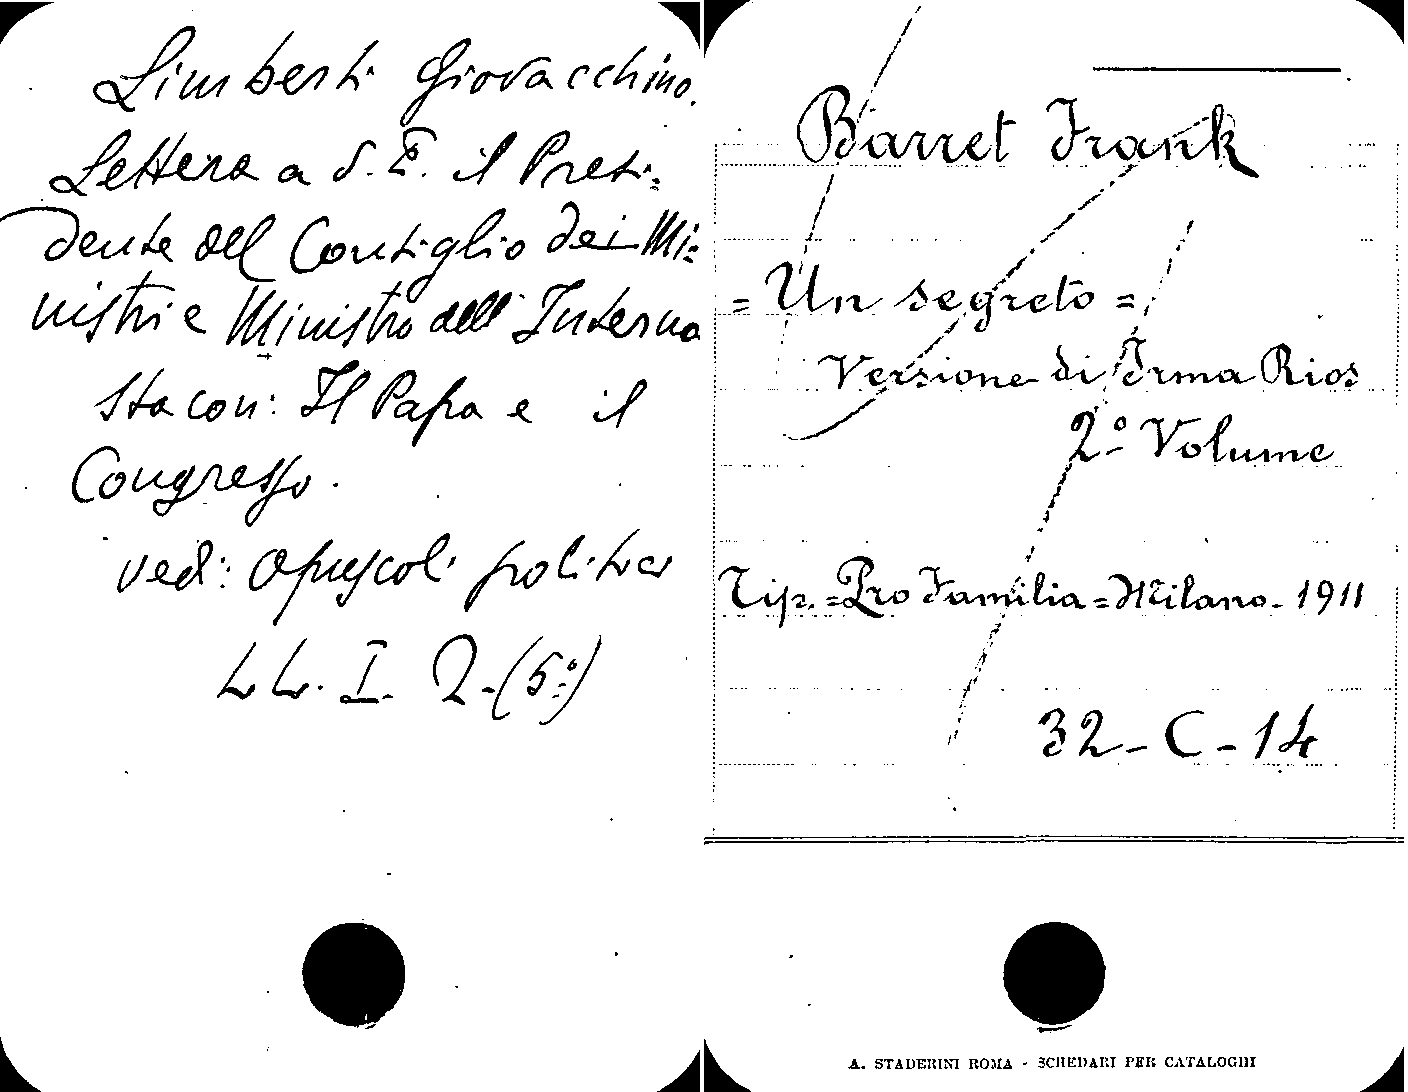 Limberti Giovacchino.
Lettera a S. E. il Presi=
dente del Consiglio dei Mi=
nistri e Ministro dell' Interno
Sta con: Il Papa e il
Congresso.
vedi: Opuscoli politici
LL. I. 2-(5º)
Barret Frank
= Un segreto =
Versione di Irma Rios
2º Volume
Tip. = Pro Familia = Milano - 1911
32 - C - 14
A. STADERINI ROMA - SCHEDARI PER CATALOGHI